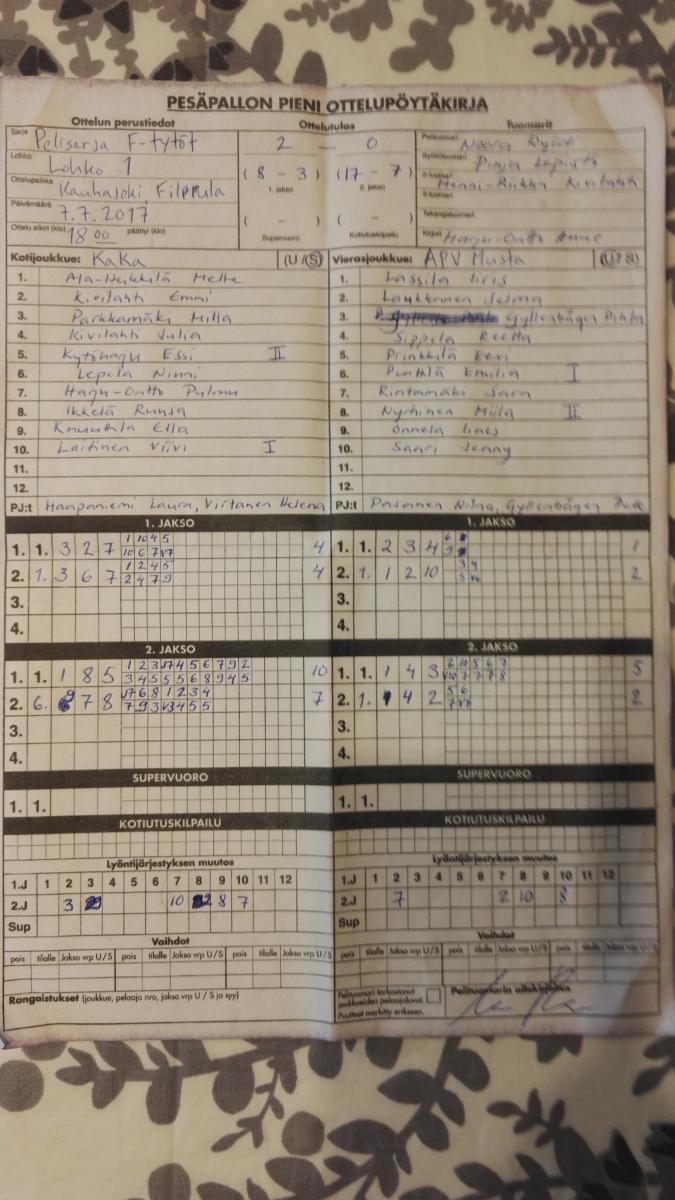 PESÄPALLON PIENI OTTELUPÖYTÄKIRJA
Ottelun perustiedot Ottelutulos Tuomarit
Sarja Pelisarja F-tytöt 2 – 0 Pelituomari
Lohko Lohko 1 (8 – 3) (17 – 7) Syöttötuomari
1. jakso 2. jakso
Ottelupaikka Kauhajoki, Filppula 2-tuomari Henni-Riikka Kivilahti
3-tuomari
Päivämäärä 7.7.2017 ( – ) ( – ) Takarajatuomari
Ottelu alkoi (klo) 18 00 päättyi (klo) Supervuoro Kotiutuskilpailu Kirjuri Harju-Ontto
Kotijoukkue: KaKa (U/S) Vierasjoukkue: APV Musta (U/S)
1. Ala-Heikkilä 1. Lassila Iiris
2. Kivilahti Emmi 2. Laukkonen Selma
3. Parkkamäki Milla 3. Gyllenbågen
4. Kivilahti Julia 4. Sippola Reetta
5. Kytöharju Essi II 5. Prinkkilä Eevi
6. Lepola Ninni 6. Emilia I
7. Harju-Ontto Pulmu 7. Rintamäki Sara
8. Ikkelä Ruusa 8. II
9. Knuuttila Ella 9. Onnela Iines
10. Laitinen Viivi I 10. Saari Jenny
11. 11.
12. 12.
PJ:t Haapaniemi Laura, Virtanen Helena PJ:t Gyllenbågen
1. JAKSO 1. JAKSO
1 10 4 5 6
1. 1. 3 2 7 10 6 7 V7 4 1. 1. 2 3 4 9 1
1 2 4 5 3 4
2. 1. 3 6 7 2 4 7 9 4 2. 1. 1 2 10 5 2
3. 3.
4. 4.
2. JAKSO 2. JAKSO
1 2 3 V7 4 5 6 7 9 2 2 10 5 6 7
1. 1. 1 8 5 3 4 5 5 5 6 8 9 4 5 10 1. 1. 1 4 3 V10 7 7 7 8 5
V7 6 8 1 2 3 4 5 6
2. 6. 9 7 8 7 9 3 V3 4 5 5 7 2. 1. 4 2 7 V7 2
3. 3.
4. 4.
SUPERVUORO SUPERVUORO
1. 1. 1. 1.
KOTIUTUSKILPAILU KOTIUTUSKILPAILU
Lyöntijärjestyksen muutos Lyöntijärjestyksen muutos
1.J 1 2 3 4 5 6 7 8 9 10 11 12 1.J 1 2 3 4 5 6 7 8 9 10 11 12
2.J 3 10 2 8 7 2.J 7 2 10 8
Sup Sup
Vaihdot Vaihdot
pois tilalle Jakso vrp U/S pois tilalle Jakso vrp U/S pois tilalle Jakso vrp U/S pois tilalle Jakso vrp U/S pois tilalle Jakso vrp U/S pois tilalle Jakso vrp U/S
Rangaistukset (joukkue, pelaaja nro, jakso vrp U / S ja syy) Pelituomari tarkastanut joukkueiden pelaajaluvat. Pelituomarin allekirjoitus
Puutteet merkitty erikseen.